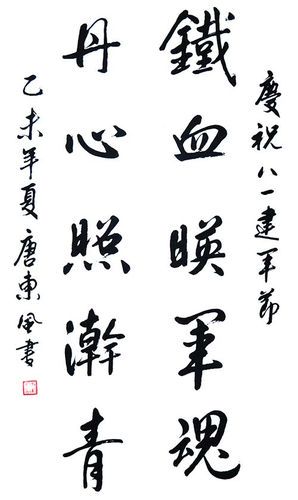 慶祝八一建軍節
鐵血暎軍魂
丹心照澣青
乙未年夏唐東風書